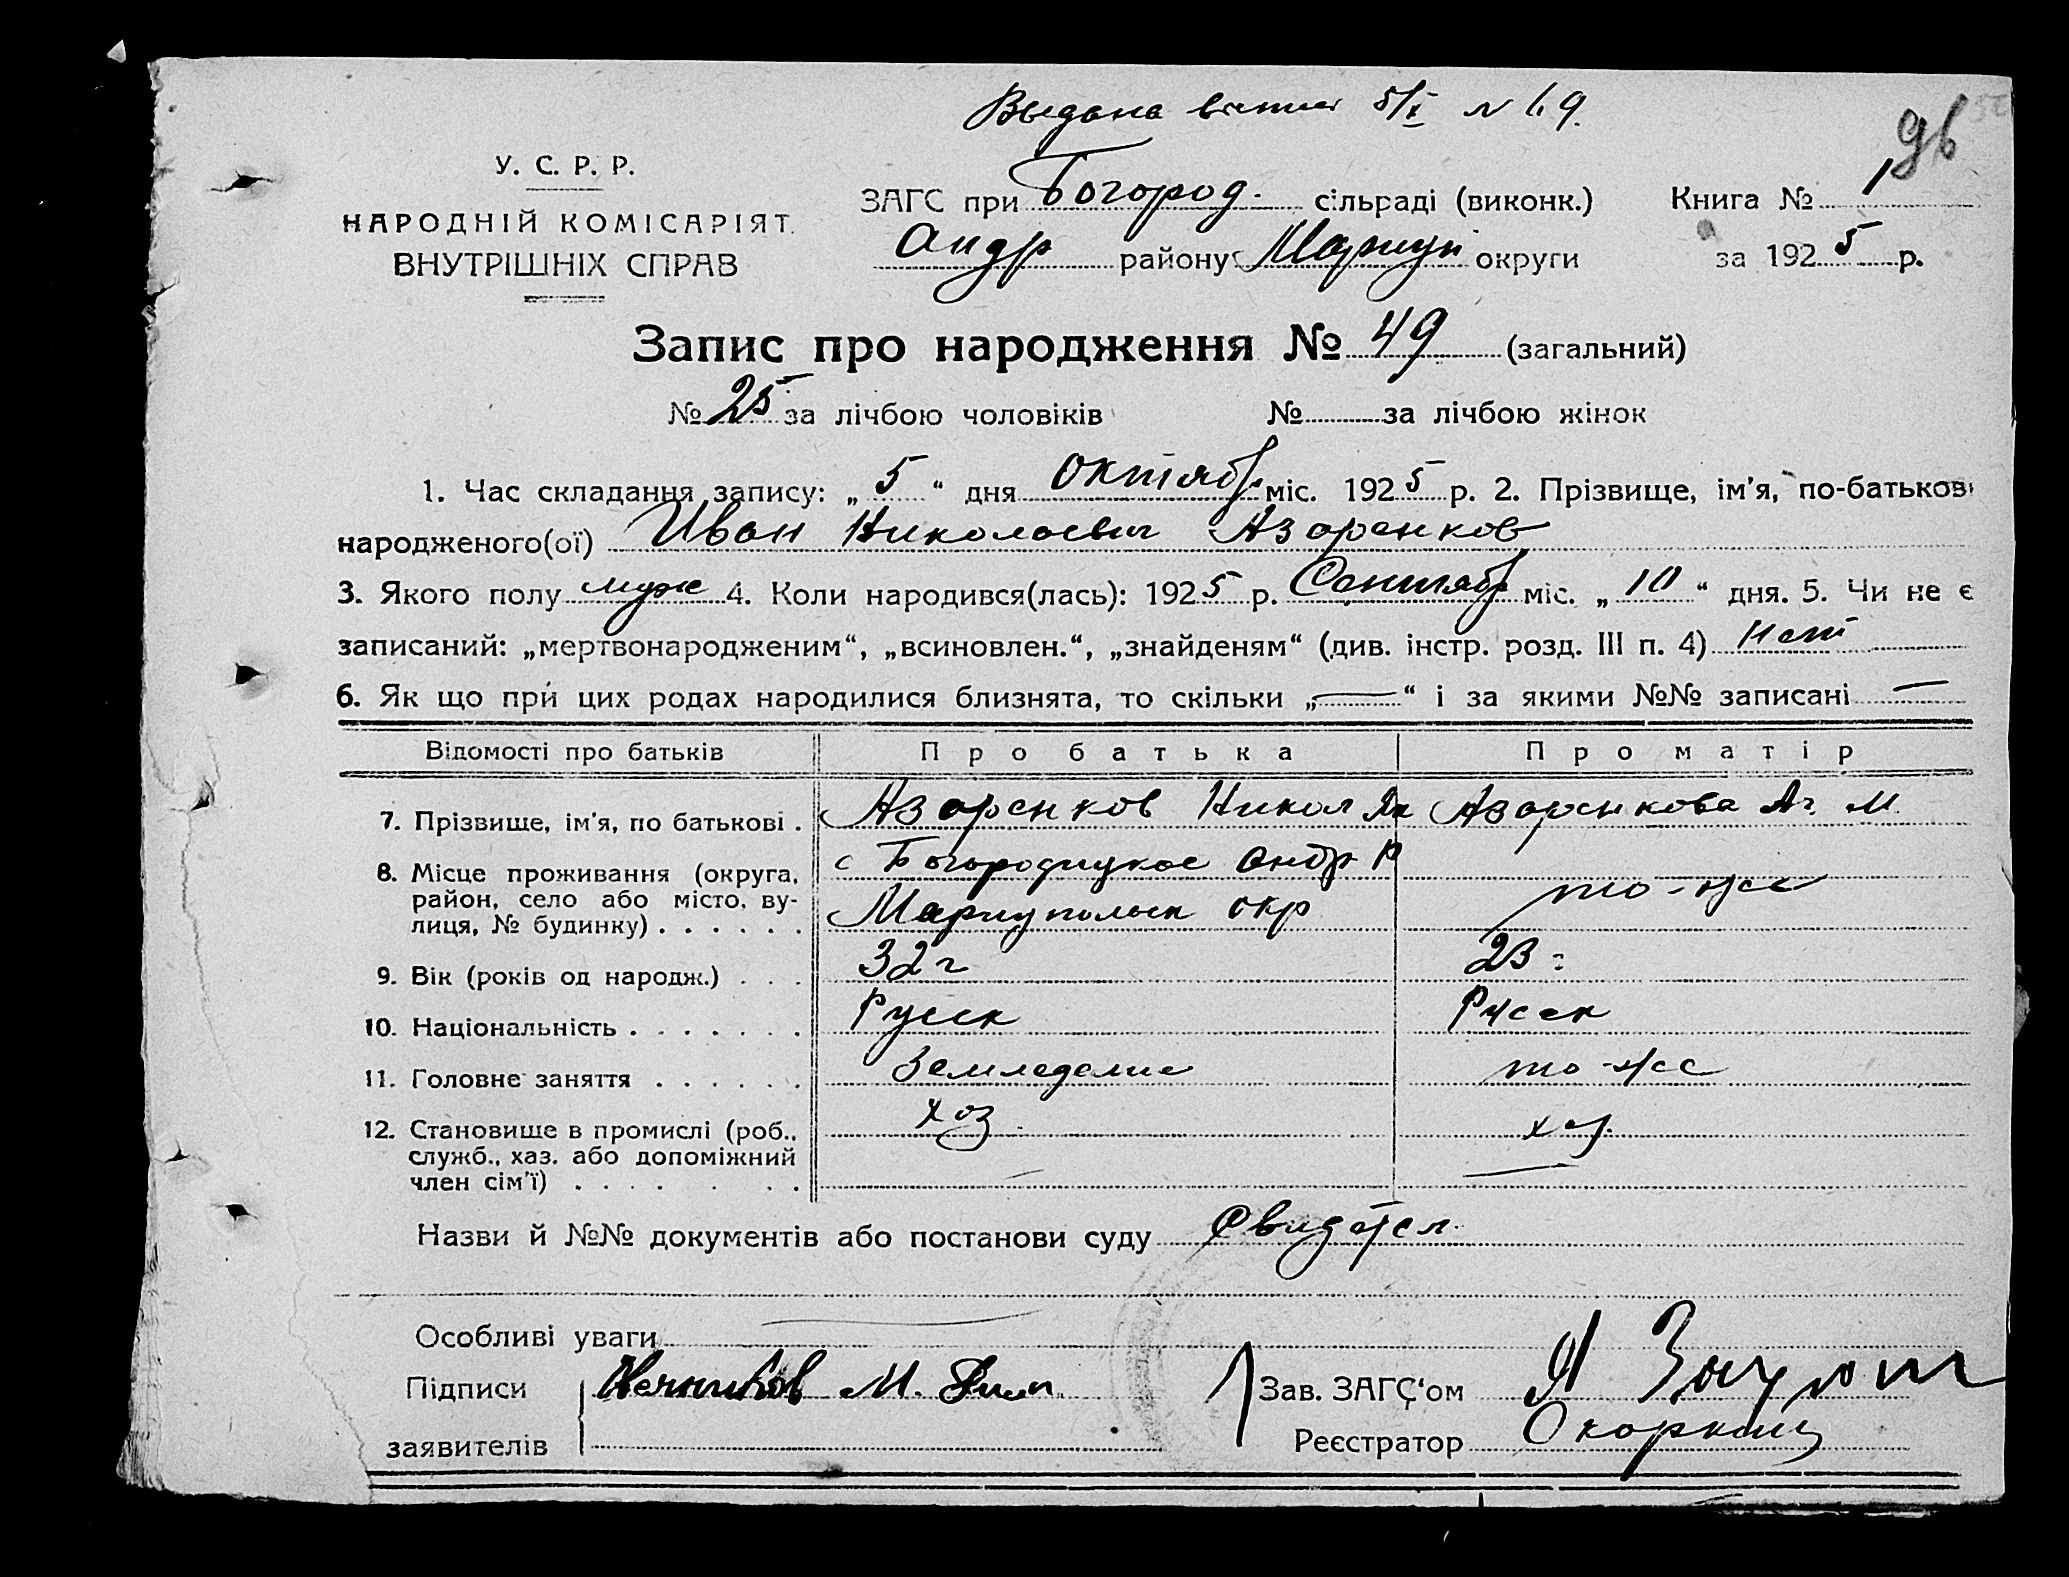 Выдана 5/X № 49.
96
У. С. Р. Р.
НАРОДНІЙ КОМІСАРІЯТ
ВНУТРІШНІХ СПРАВ
ЗАГС при Богород. сільраді (виконк.)
Андр району Мариуп округи
Книга № 1
за 1925 р.
Запис про народження № 49 (загальний)
№ 25 за лічбою чоловіків № за лічбою жінок
1. Час складання запису: „5“ дня Октябр міс. 1925 р. 2. Прізвище, ім'я, по-батькові
народженого(ої) Иван Николаевич Азаренков
3. Якого полу муж 4. Коли народився(лась): 1925 р. Сентябр міс. „10“ дня. 5. Чи не є
записаний: „мертвонародженим“, „всиновлен.“, „знайденям“ (див. інстр. розд. III п. 4) Нет
6. Як що при цих родах народилися близнята, то скільки „—“ і за якими №№ записані —
Відомості про батьків Про батька Про матір
7. Прізвище, ім'я, по батькові . Азаренков Никол Як Азаренкова М.
8. Місце проживання (округа, район, село або місто, вулиця, № будинку) . . . . . . с Богородицкое Андр Р
Мариупольск окр то-же
9. Вік (років од народж.) . . . 32 г 23 г
10. Національність . . . . . . . Русск Русск
11. Головне заняття . . . . . . Земледелие то-же
12. Становище в промислі (роб., служб., хаз. або допоміжний член сім'ї) . . . . . . . хоз. хоз.
Назви й №№ документів або постанови суду Свидетел.
Особливі уваги
Підписи
заявителів
М.
Зав. ЗАГС'ом
Реєстратор